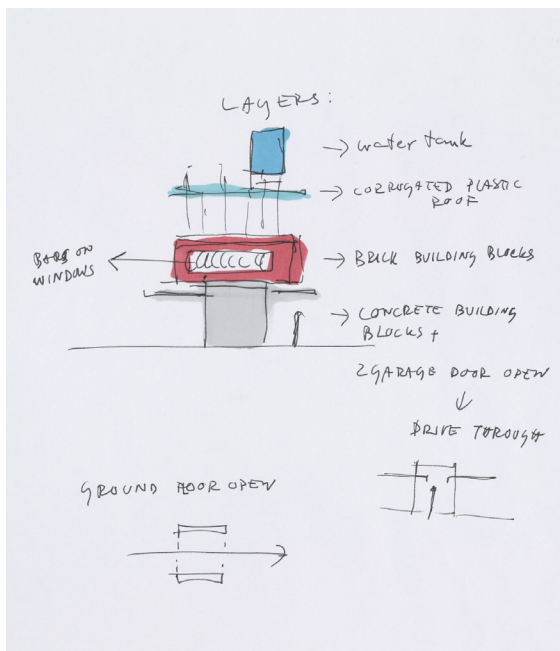 LAYERS:
→ water tank
→ CORRUGATED PLASTIC
ROOF
BARS ON
WINDOWS
→ BRICK BUILDING BLOCKS
→ CONCRETE BUILDING
BLOCKS +
2 GARAGE DOOR OPEN
↓
DRIVE THROUGH
GROUND DOOR OPEN